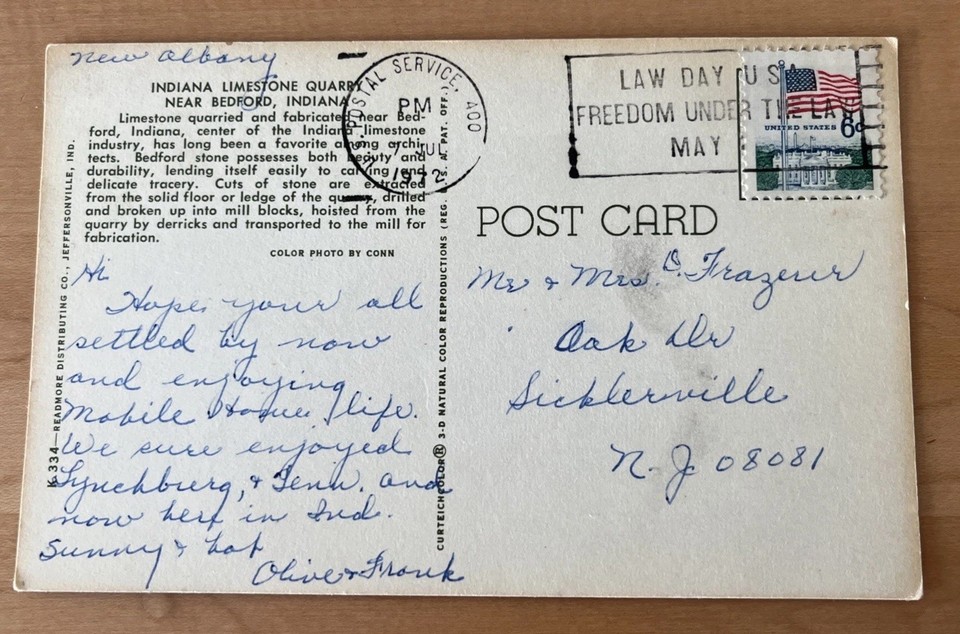 New Albany
INDIANA LIMESTONE QUARRY
NEAR BEDFORD, INDIANA
Limestone quarried and fabricated near Bed-
ford, Indiana, center of the Indiana limestone
industry, has long been a favorite among archi-
tects. Bedford stone possesses both beauty and
durability, lending itself easily to carving and
delicate tracery. Cuts of stone are extracted
from the solid floor or ledge of the quarry, drilled
and broken up into mill blocks, hoisted from the
quarry by derricks and transported to the mill for
fabrication.
COLOR PHOTO BY CONN
Hi
Hope your all
settled by now
and enjoying
Mobile Home life.
We sure enjoyed
Lynchburg, & Tenn. and
now here in Ind.
Sunny & hot
Olive & Frank
K-334—READMORE DISTRIBUTING CO., JEFFERSONVILLE, IND.
CURTEICHCOLOR® 3-D NATURAL COLOR REPRODUCTIONS (REG. U.S.A. PAT. OFF.)
U.S. POSTAL SERVICE, AOO
PM
7 JUL
1972
LAW DAY USA
FREEDOM UNDER THE LAW
MAY
UNITED STATES 6c
POST CARD
Mr & Mrs. O. Frazeur
Oak Dr
Sicklerville
N.J. 08081